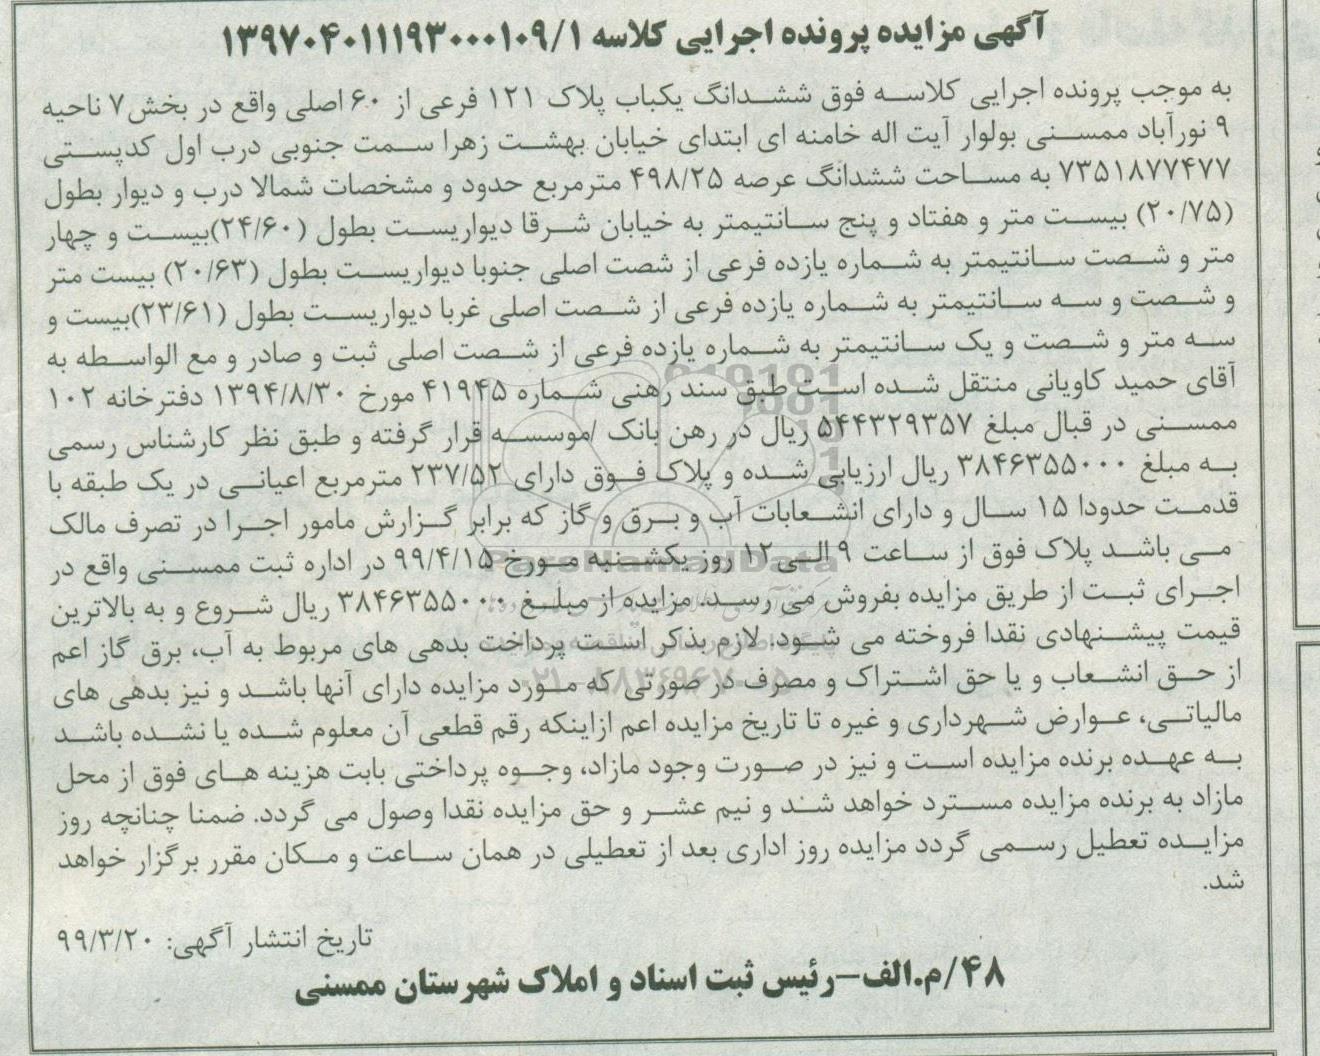 آگهی مزایده پرونده اجرایی کلاسه ۱۳۹۷۰۴۰۱۱۱۹۳۰۰۰۱۰۹/۱
به موجب پرونده اجرایی کلاسه فوق ششدانگ یکباب پلاک ۱۲۱ فرعی از ۶۰ اصلی واقع در بخش۷ ناحیه
۹ نورآباد ممسنی بولوار آیت اله خامنه ای ابتدای خیابان بهشت زهرا سمت جنوبی درب اول کدپستی
۷۳۵۱۸۷۷۴۷۷ به مساحت ششدانگ عرصه ۴۹۸/۲۵ مترمربع حدود و مشخصات شمالا درب و دیوار بطول
(۲۰/۷۵) بیست متر و هفتاد و پنج سانتیمتر به خیابان شرقا دیواریست بطول (۲۴/۶۰)بیست و چهار
متر و شصت سانتیمتر به شماره یازده فرعی از شصت اصلی جنوبا دیواریست بطول (۲۰/۶۳) بیست متر
و شصت و سه سانتیمتر به شماره یازده فرعی از شصت اصلی غربا دیواریست بطول (۲۳/۶۱)بیست و
سه متر و شصت و یک سانتیمتر به شماره یازده فرعی از شصت اصلی ثبت و صادر و مع الواسطه به
آقای حمید کاویانی منتقل شده است طبق سند رهنی شماره ۴۱۹۴۵ مورخ ۱۳۹۴/۸/۳۰ دفترخانه ۱۰۲
ممسنی در قبال مبلغ ۵۴۴۳۲۹۳۵۷ ریال در رهن بانک /موسسه قرار گرفته و طبق نظر کارشناس رسمی
به مبلغ ۳۸۴۶۳۵۵۰۰۰ ریال ارزیابی شده و پلاک فوق دارای ۲۳۷/۵۲ مترمربع اعیانی در یک طبقه با
قدمت حدودا ۱۵ سال و دارای انشعابات آب و برق و گاز که برابر گزارش مامور اجرا در تصرف مالک
می باشد پلاک فوق از ساعت ۹ الی ۱۲ روز یکشنبه مورخ ۹۹/۴/۱۵ در اداره ثبت ممسنی واقع در
اجرای ثبت از طریق مزایده بفروش می رسد. مزایده از مبلغ ۳۸۴۶۳۵۵۰۰۰ ریال شروع و به بالاترین
قیمت پیشنهادی نقدا فروخته می شود. لازم بذکر است پرداخت بدهی های مربوط به آب، برق گاز اعم
از حق انشعاب و یا حق اشتراک و مصرف در صورتی که مورد مزایده دارای آنها باشد و نیز بدهی های
مالیاتی، عوارض شهرداری و غیره تا تاریخ مزایده اعم ازاینکه رقم قطعی آن معلوم شده یا نشده باشد
به عهده برنده مزایده است و نیز در صورت وجود مازاد، وجوه پرداختی بابت هزینه های فوق از محل
مازاد به برنده مزایده مسترد خواهد شد و نیم عشر و حق مزایده نقدا وصول می گردد. ضمنا چنانچه روز
مزایده تعطیل رسمی گردد مزایده روز اداری بعد از تعطیلی در همان ساعت و مکان مقرر برگزار خواهد
شد.
تاریخ انتشار آگهی: ۹۹/۳/۲۰
۴۸/م.الف–رئیس ثبت اسناد و املاک شهرستان ممسنی
ParsNamadData